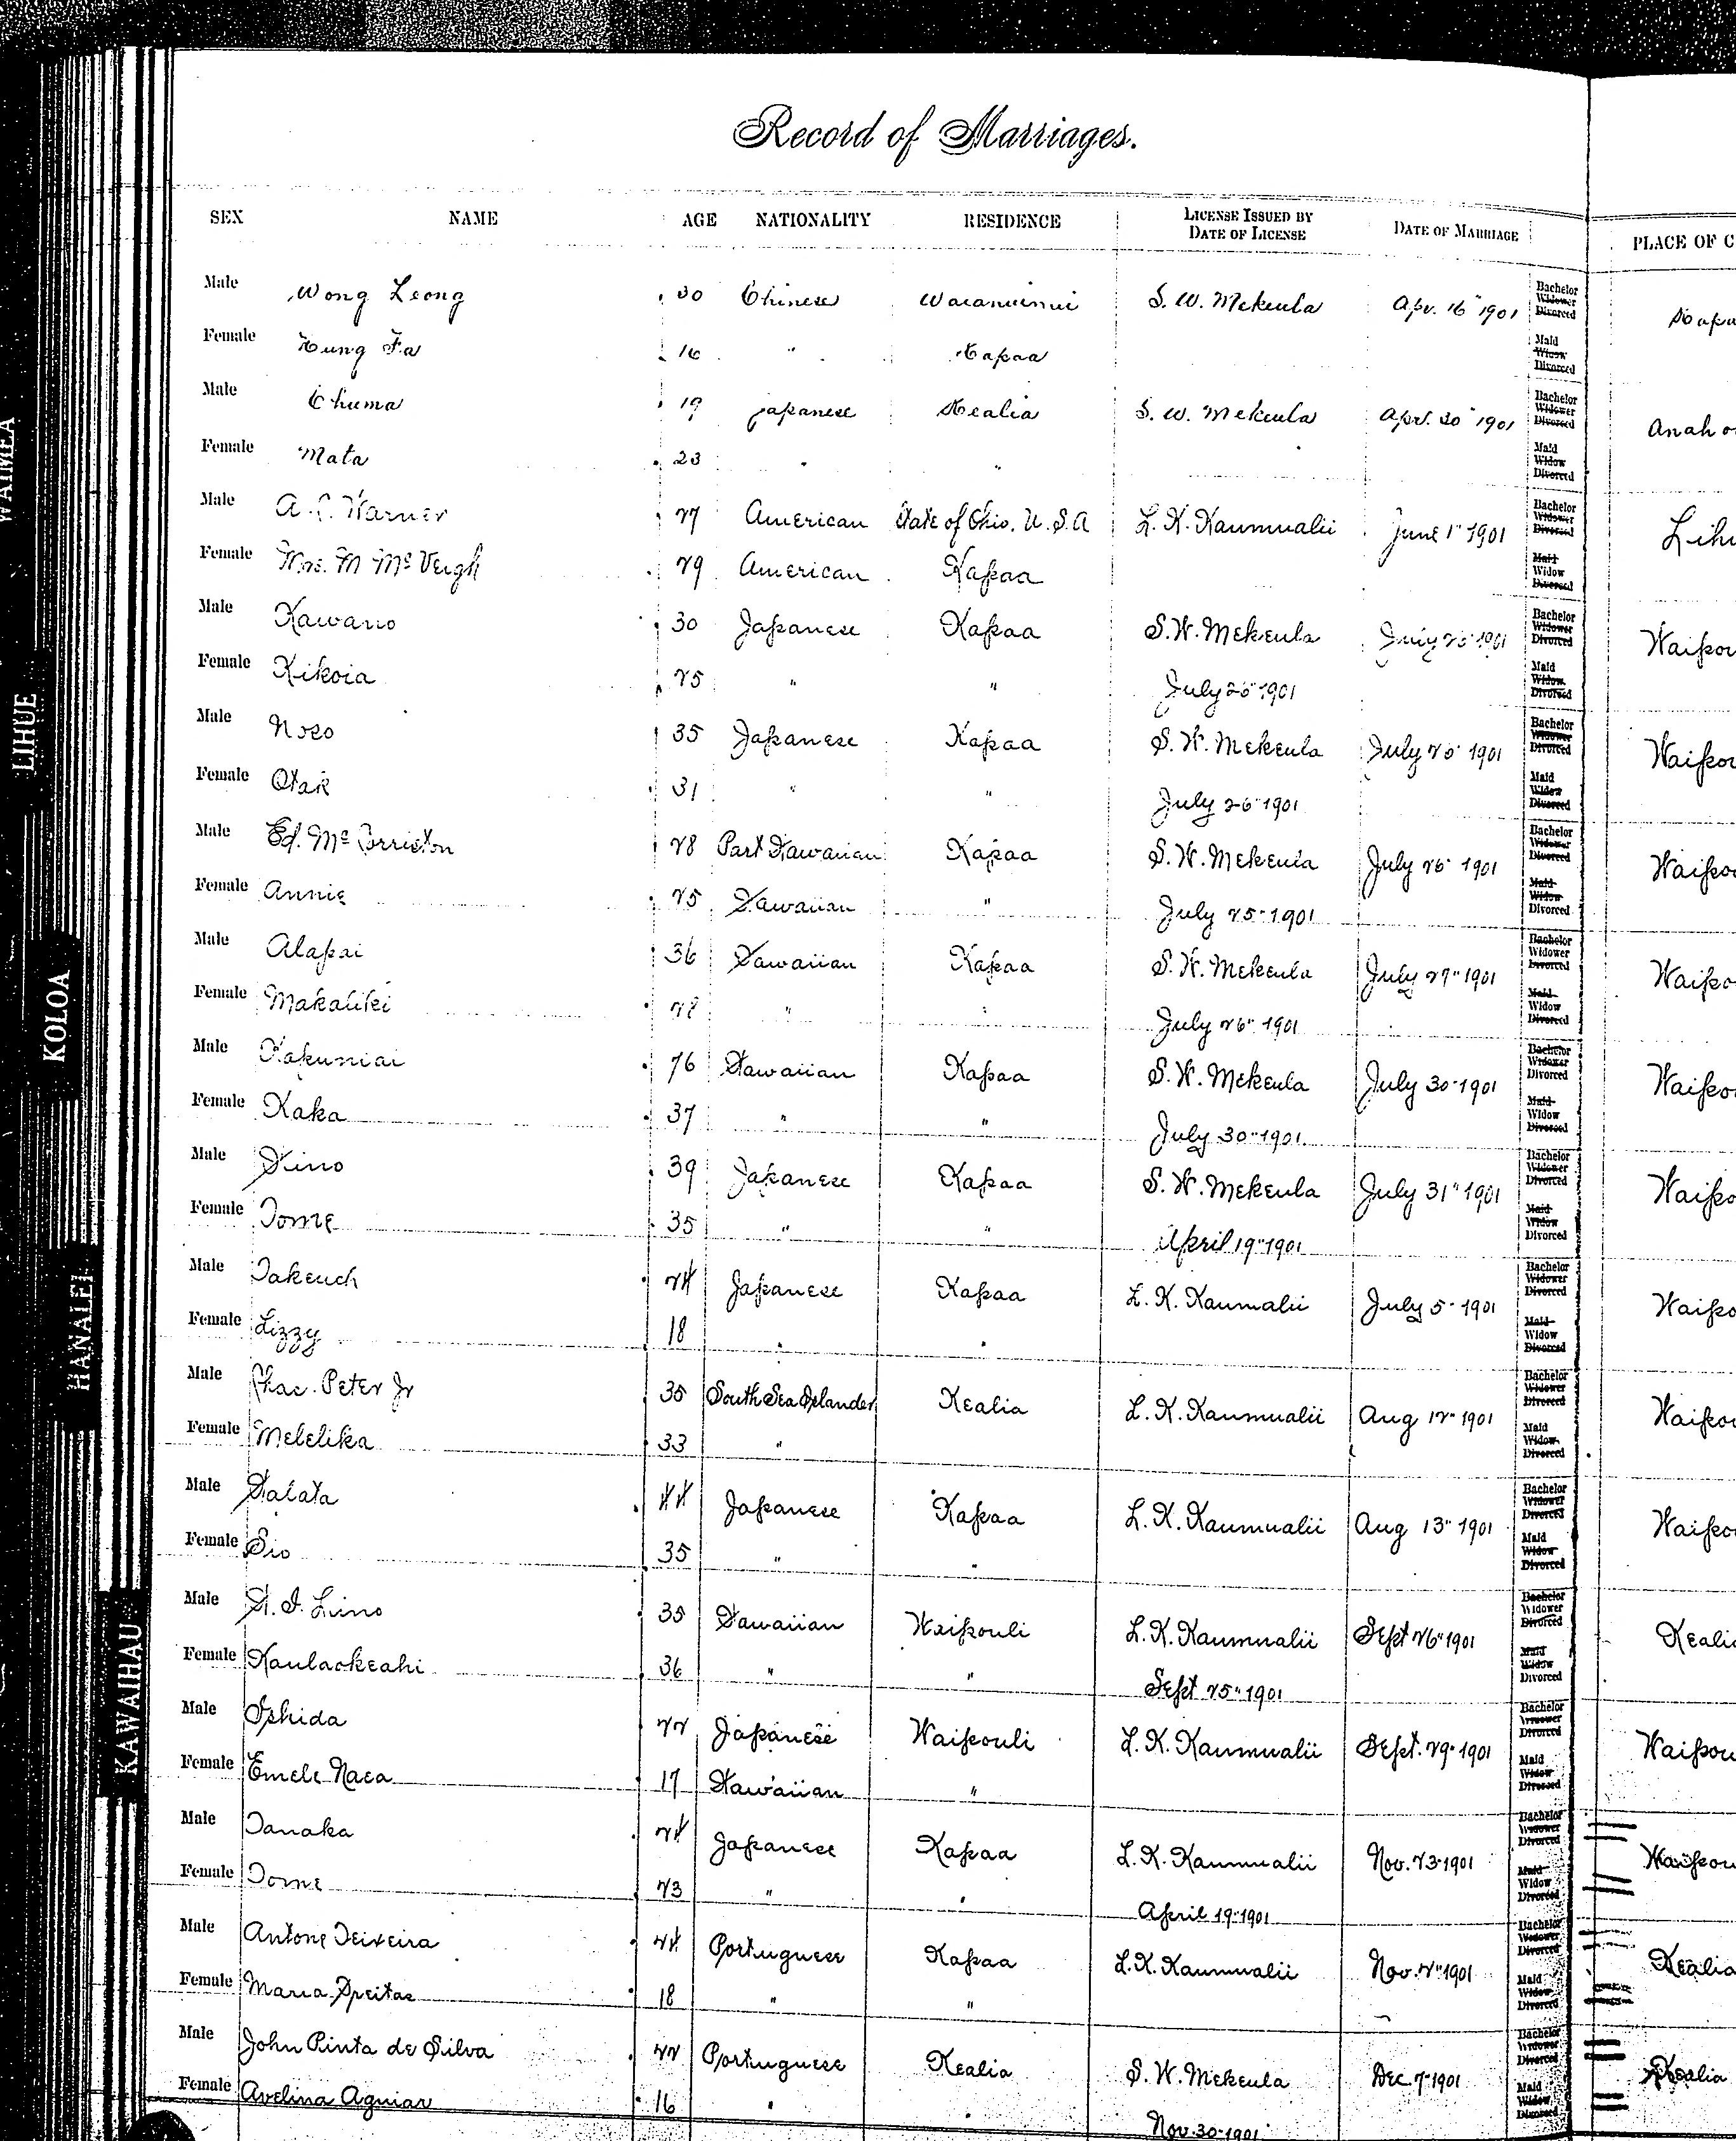 Record of Marriages.
SEX NAME AGE NATIONALITY RESIDENCE LICENSE ISSUED BY DATE OF LICENSE DATE OF MARRIAGE PLACE OF C
Male Wong Leong 30 Chinese S. W. Mekeula Apr. 16" 1901 Bachelor Widower Divorced
Female Fa 16 " Kapaa Maid Widow Divorced
Male Chuma 19 Japanese Kealia S. W. Mekeula Apr. 30" 1901 Bachelor Widower Divorced Anah
Female Mata 23 " " Maid Widow Divorced
Male A. Warner 27 American State of Ohio, U. S. A L. K. Kaumualii June 1" 1901 Bachelor Widower Divorced Lihu
Female Mrs. M McVeigh 29 American Kapaa Maid Widow Divorced
Male Kawano 30 Japanese Kapaa S. W. Mekeula July 1901 Bachelor Widower Divorced Waipou
Female Kikoia 25 " " July 1901 Maid Widow Divorced
Male 35 Japanese Kapaa S. W. Mekeula July 1901 Bachelor Widower Divorced Waipou
Female Otak 31 " " July 26" 1901 Maid Widow Divorced
Male Ed. McCorriston 28 Part Hawaiian Kapaa S. W. Mekeula July 26" 1901 Bachelor Widower Divorced Waipou
Female Annie 25 Hawaiian " July 25" 1901 Maid Widow Divorced
Male Alapai 36 Hawaiian Kapaa S. W. Mekeula July 27" 1901 Bachelor Widower Divorced Waipo
Female Makaliki 28 " " July 26" 1901 Maid Widow Divorced
Male 76 Hawaiian Kapaa S. W. Mekeula July 30" 1901 Bachelor Widower Divorced Waipou
Female Kaka 37 " " July 30" 1901 Maid Widow Divorced
Male Hino 39 Japanese Kapaa S. W. Mekeula July 31" 1901 Bachelor Widower Divorced Waipo
Female Tome 35 " " April 19" 1901 Maid Widow Divorced
Male Takeuch 24 Japanese Kapaa L. K. Kaumalii July 5" 1901 Bachelor Widower Divorced Waipo
Female Lizzy 18 " " Maid Widow Divorced
Male Chas. Peter Jr 35 South Sea Islander Kealia L. K. Kaumualii Aug 12" 1901 Bachelor Widower Divorced Waipou
Female Melelika 33 " Maid Widow Divorced
Male Halata 44 Japanese Kapaa L. K. Kaumualii Aug 13" 1901 Bachelor Widower Divorced Waipou
Female Sio 35 " " Maid Widow Divorced
Male H. I. Lino 35 Hawaiian Waipouli L. K. Kaumualii Sept 26" 1901 Bachelor Widower Divorced Kealia
Female Kaulaokeahi 36 " " Sept 25" 1901 Maid Widow Divorced
Male Ishida 22 Japanese Waipouli L. K. Kaumualii Sept. 29" 1901 Bachelor Widower Divorced Waipou
Female Emele Naea 17 Hawaiian " Maid Widow Divorced
Male Tanaka 24 Japanese Kapaa L. K. Kaumualii Nov. 23" 1901 Bachelor Widower Divorced Waipou
Female Tome 23 " " April 19" 1901 Maid Widow Divorced
Male Antone Teixeira 24 Portuguese Kapaa L. K. Kaumualii Nov. 2" 1901 Bachelor Widower Divorced Kealia
Female Maria Freitas 18 " " Maid Widow Divorced
Male John Pinta de Silva 22 Portuguese Kealia S. W. Mekeula Dec. 7" 1901 Bachelor Widower Divorced Kealia
Female Avelina Aguiar 16 " " Nov. 30" 1901 Maid Widow Divorced
WAIMEA
LIHUE
KOLOA
HANALEI
KAWAIHAU